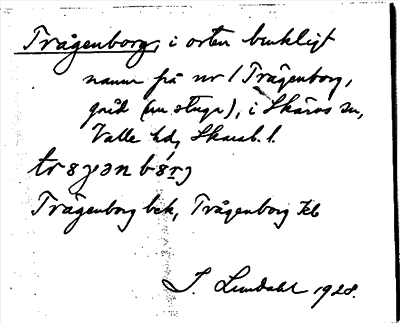 Trågenborg, i orten brukligt
namn på nr 1 Trågenborg,
gård (nu stuga), i Skärvs sn,
Valle hd, Skarab. l.
Trågenborg bek, Trågenborg Kb
J. Lundahl 1928.